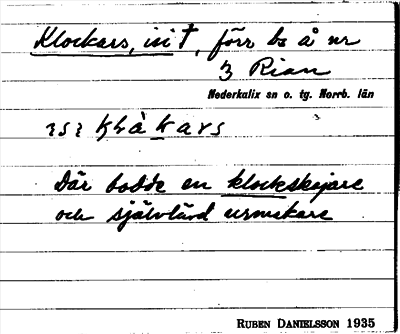 Klockars, isit †, förr bs å nr
3 Rian
Nederkalix sn o. tg. Norrb. län
Där bodde en klockskojare
och självlärd urmakare
RUBEN DANIELSSON 1935